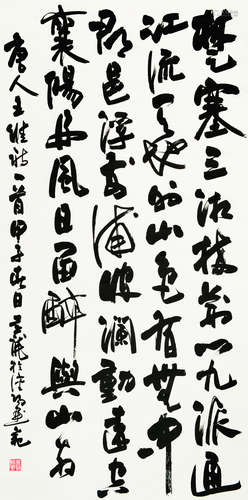 楚塞三湘接荆門九派通
江流天地外山色有無中
郡邑浮前浦波瀾動遠空
襄陽好風日留醉與山翁
唐人王維詩一首甲子春日